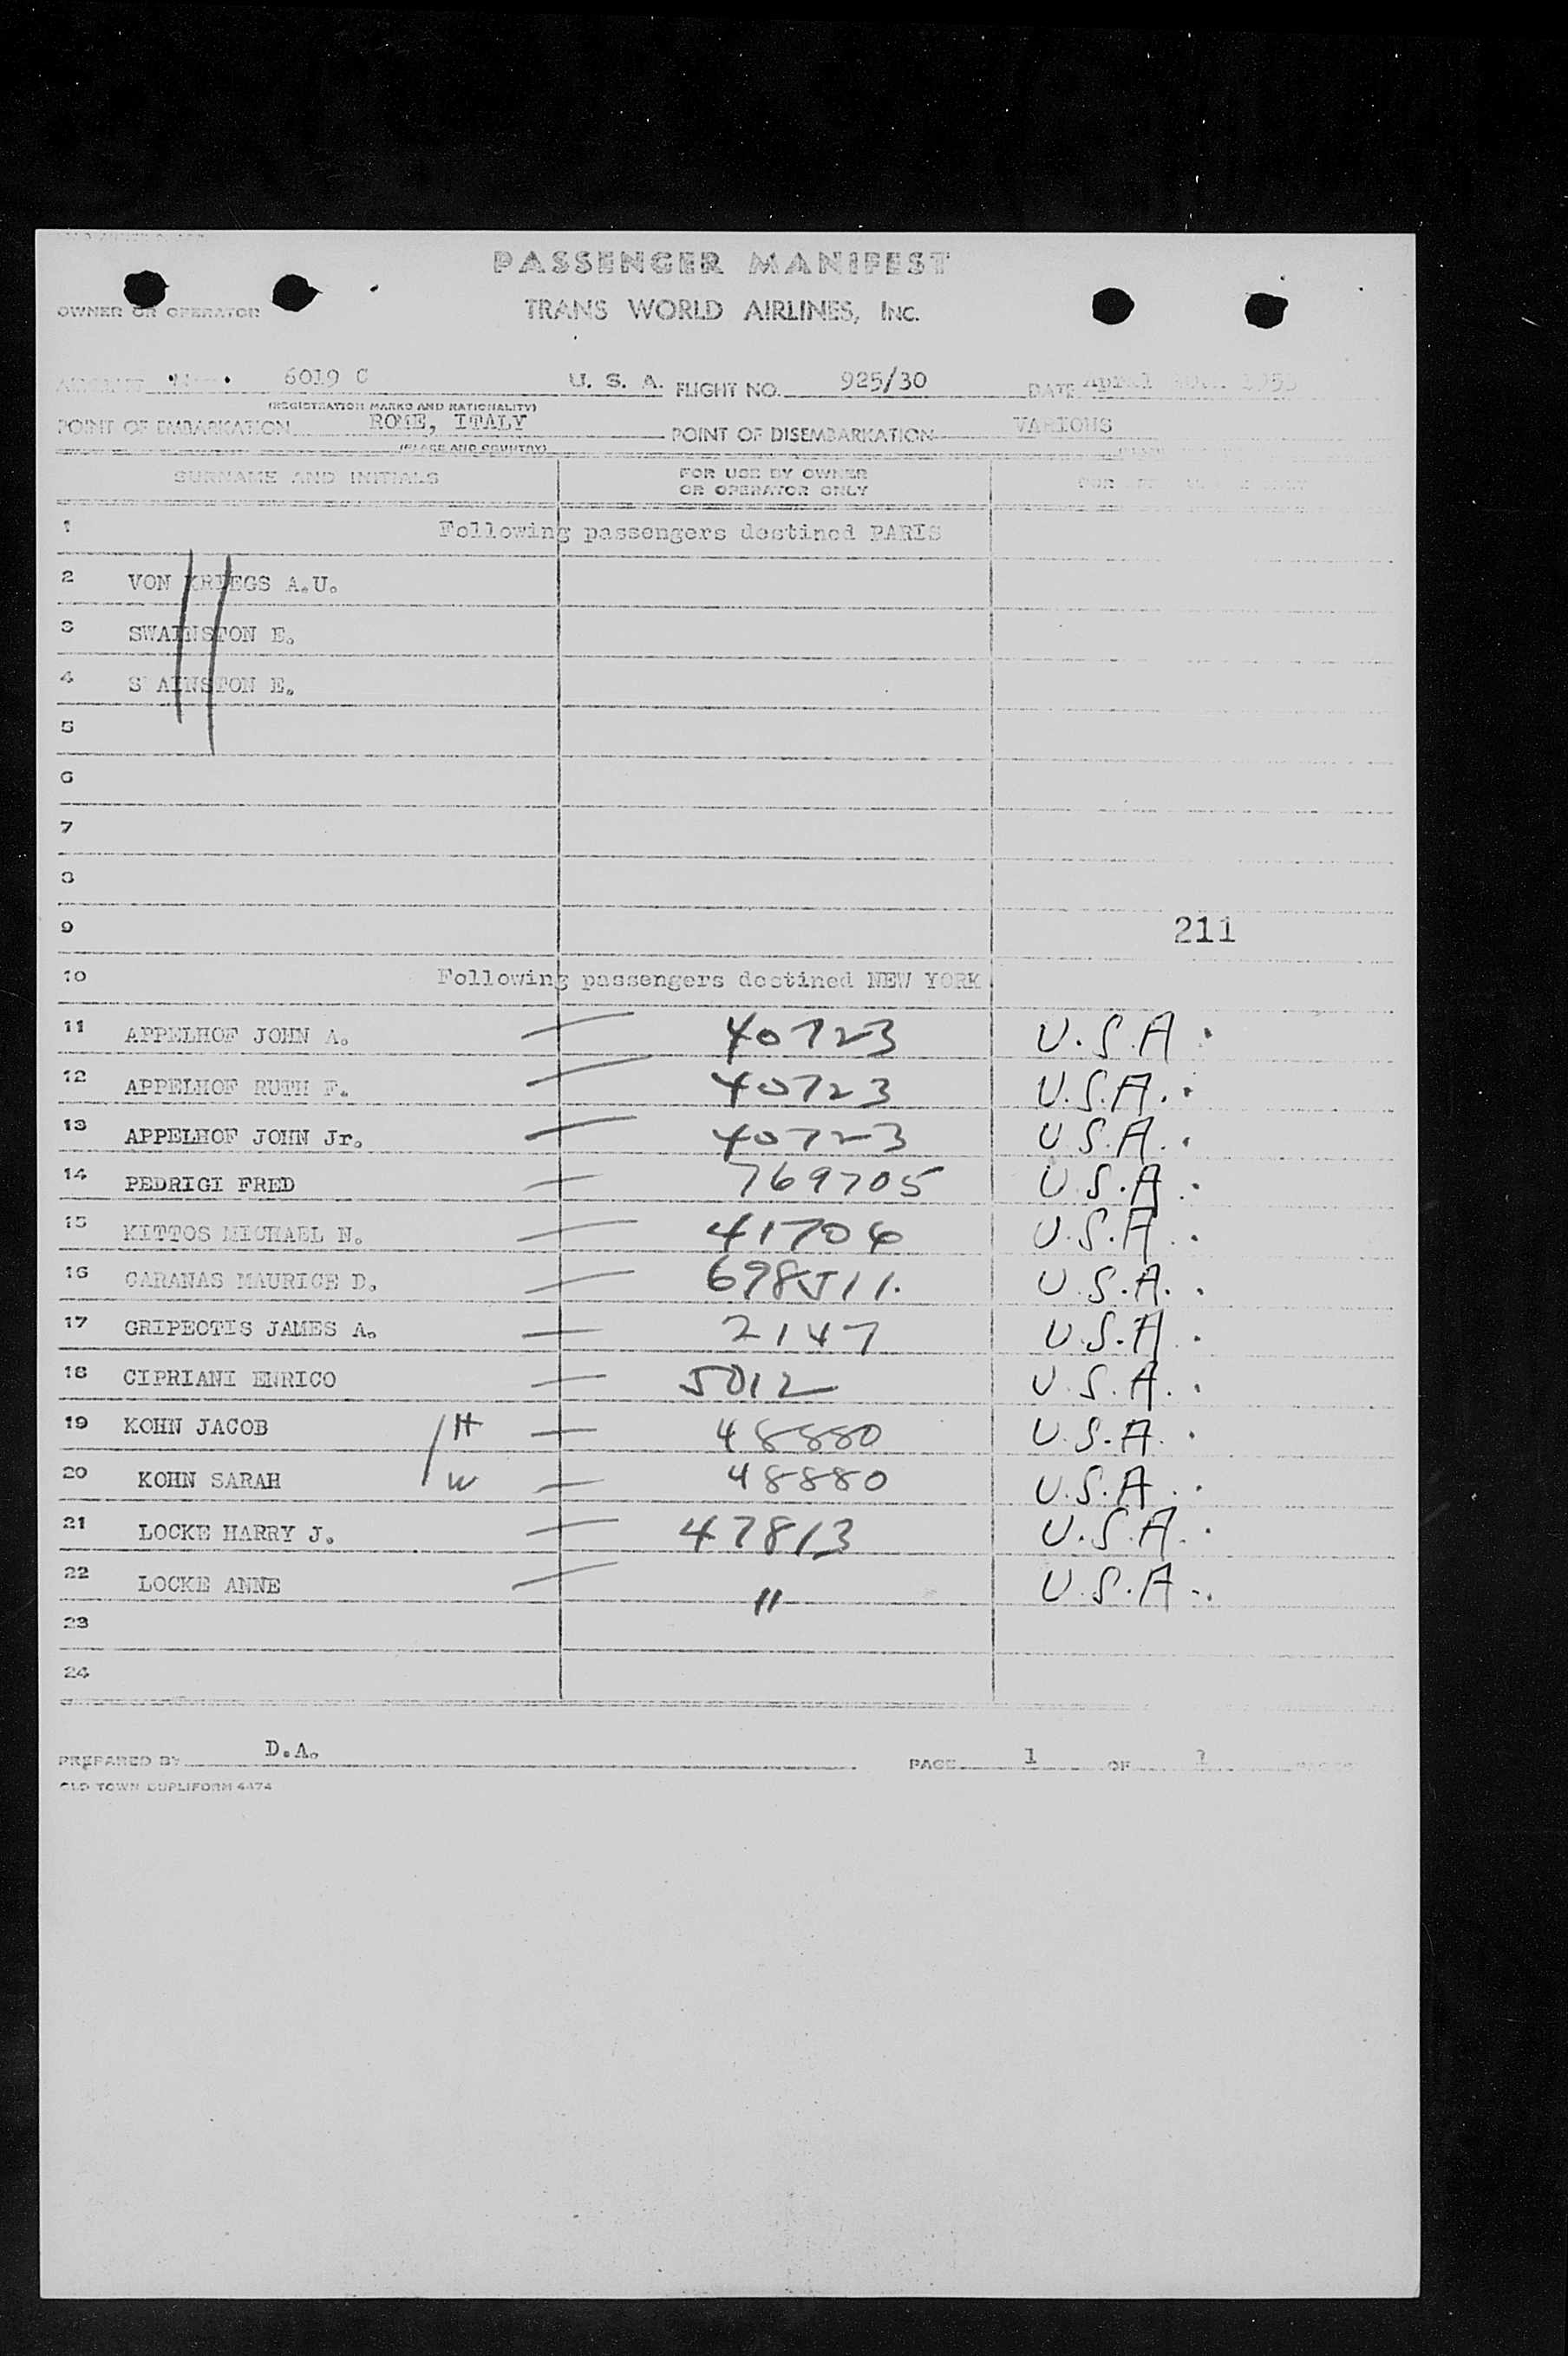 PASSENGER MANIFEST
OWNER OR OPERATOR TRANS WORLD AIRLINES, INC.
6019 C U. S. A. FLIGHT NO. 925/30 DATE April
(REGISTRATION MARKS AND NATIONALITY)
POINT OF EMBARKATION ROME, ITALY POINT OF DISEMBARKATION VARIOUS
(PLACE AND COUNTRY)
SURNAME AND INITIALS FOR USE BY OWNER OR OPERATOR ONLY
1 Following passengers destined PARIS
2 VON KRIEGS A.U.
3 SWAINSTON E.
4 S AINSTON E.
5
6
7
8
9 211
10 Following passengers destined NEW YORK
11 APPELHOF JOHN A. — 40723 U.S.A.
12 APPELHOF RUTH F. — 40723 U.S.A.
13 APPELHOF JOHN Jr. — 40723 U.S.A.
14 PEDRIGI FRED — 769705 U.S.A.
15 KITTOS MICHAEL N. — 41706 U.S.A.
16 CARANAS MAURICE D. — 698511. U.S.A.
17 GRIPEOTIS JAMES A. — 2147 U.S.A.
18 CIPRIANI ENRICO — 5012 U.S.A.
19 KOHN JACOB / H — 48880 U.S.A.
20 KOHN SARAH / W — 48880 U.S.A.
21 LOCKE HARRY J. — 47813 U.S.A.
22 LOCKE ANNE — " U.S.A.
23
24
PREPARED BY D.A. PAGE 1 OF
OLD TOWN DUPLIFORM 4474